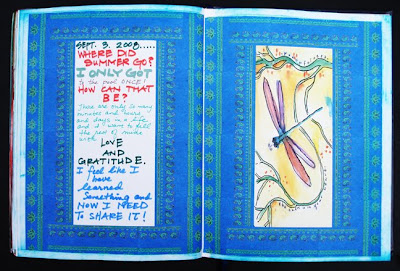 SEPT. 3, 2008.....
WHERE DID
SUMMER GO?
I ONLY GOT
in the pool ONCE!
HOW CAN THAT
BE?
There are only so many
minutes and hours
and days in a life
and I want to fill
the rest of mine
with
LOVE
AND
GRATITUDE.
I feel like I
have
learned
Something and
NOW I NEED
TO SHARE IT!